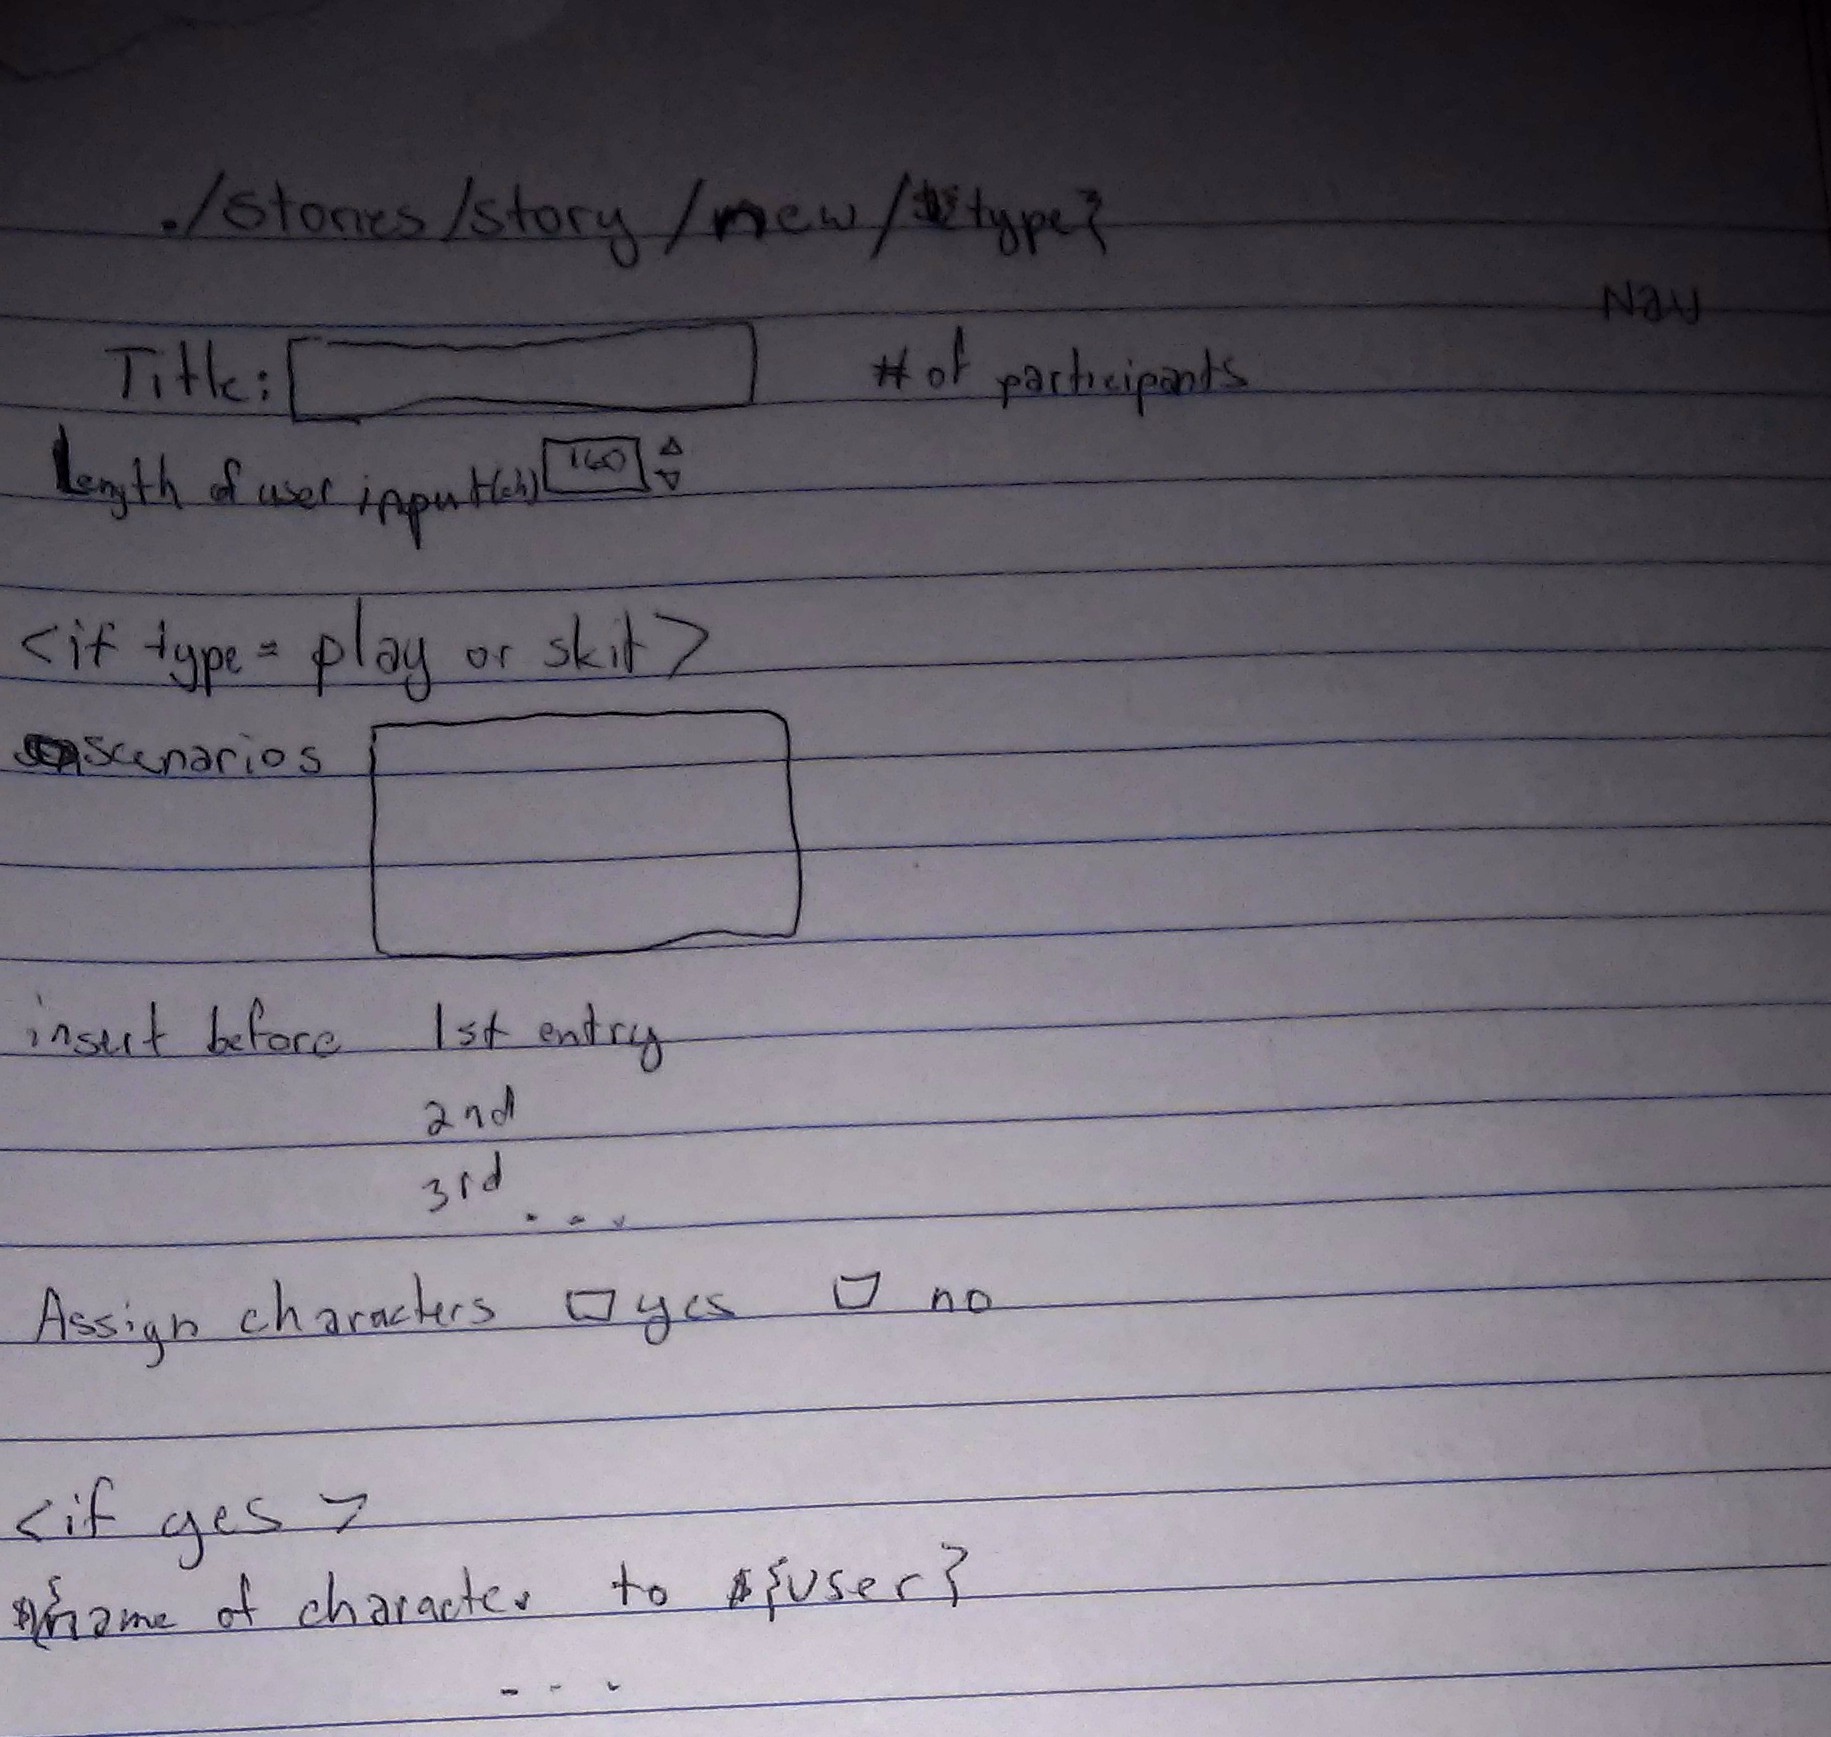 ./stories/story/new/${type}
Nav
Title: # of participants
Length of user input(ch) 160
<if type = play or skit>
scenarios
insert before 1st entry
2nd
3rd ...
Assign characters yes no
<if yes>
${name of character to ${user}
...